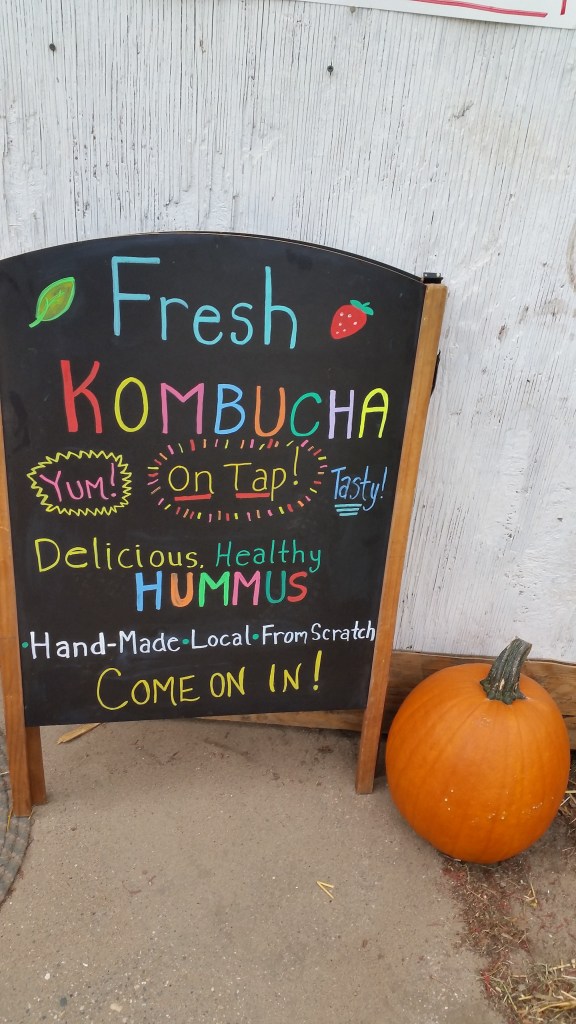 Fresh
KOMBUCHA
YUM! On Tap! Tasty!
Delicious, Healthy
HUMMUS
·Hand-Made·Local·From Scratch
COME ON IN!